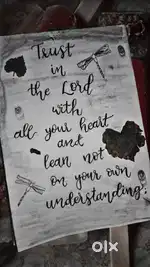 Trust
in
the Lord
with
all your heart
and
lean not
on your own
understanding.
olx